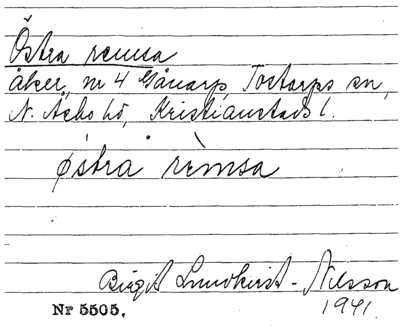 Östra remsa
åker, nr 4 Gånarp, Tostarps sn,
N. Åsbo hd, Kristianstads l.
østra rèmsa
Birgit Lundkvist-Nilsson
1941.
Nr 5505.